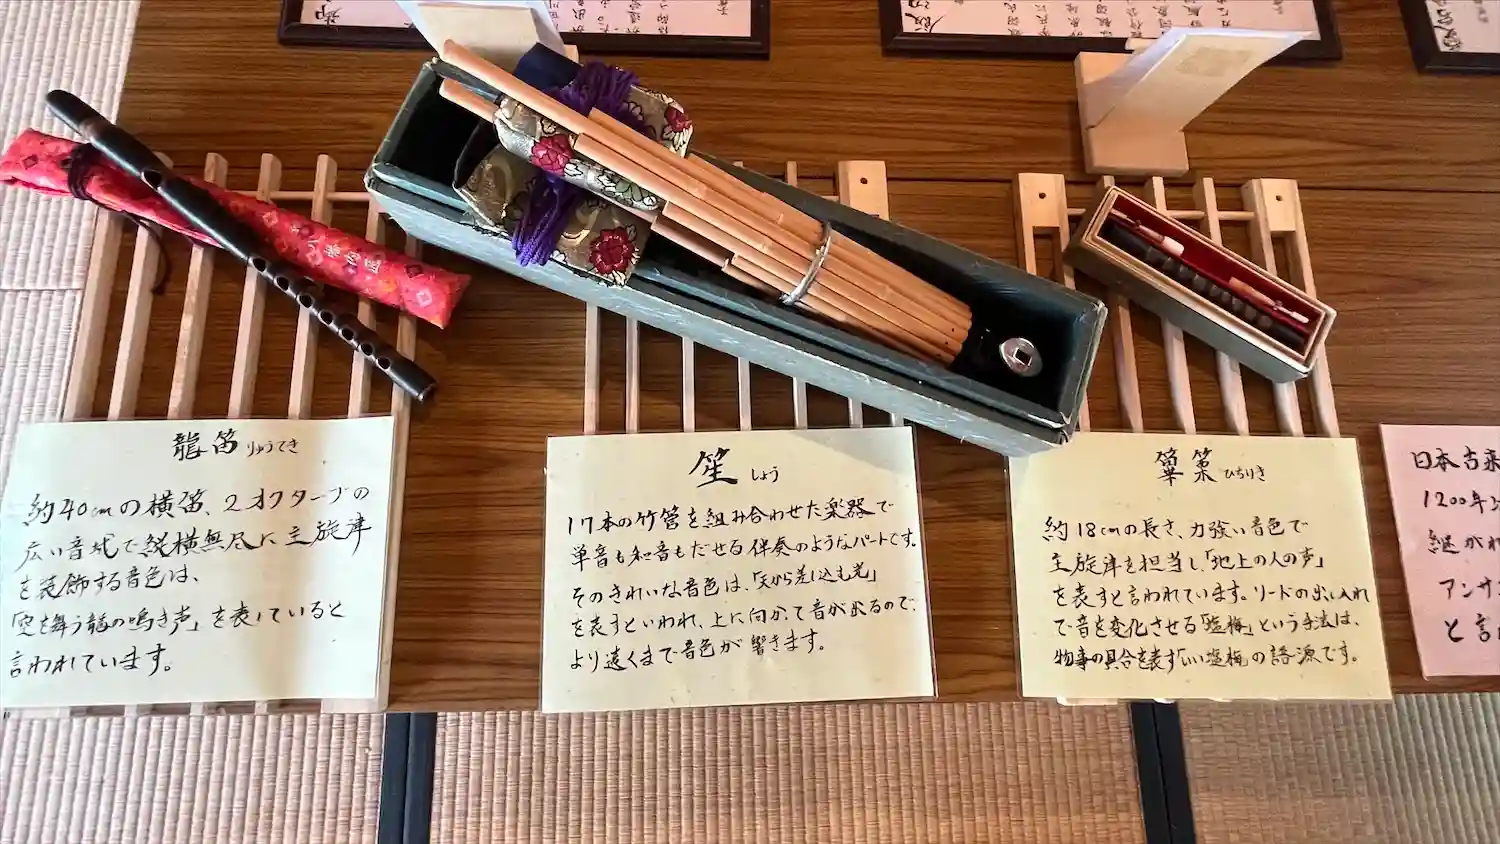 龍笛 りゅうてき
約40cmの横笛、2オクターブの
広い音域で縦横無尽に主旋律
を装飾する音色は、
「空を舞う龍の鳴き声」を表していると
言われています。
笙 しょう
17本の竹管を組み合わせた楽器で
単音も和音もだせる伴奏のようなパートです。
そのきれいな音色は、「天から差し込む光」
を表すといわれ、上に向かって音が出るので、
より遠くまで音色が響きます。
篳篥 ひちりき
約18cmの長さ、力強い音色で
主旋律を担当し「地上の人の声」
を表すと言われています。リードの出し入れ
で音を変化させる「塩梅」という手法は、
物事の具合を表す「いい塩梅」の語源です。
日本古来
1200年
継がれ
アンサ
と言